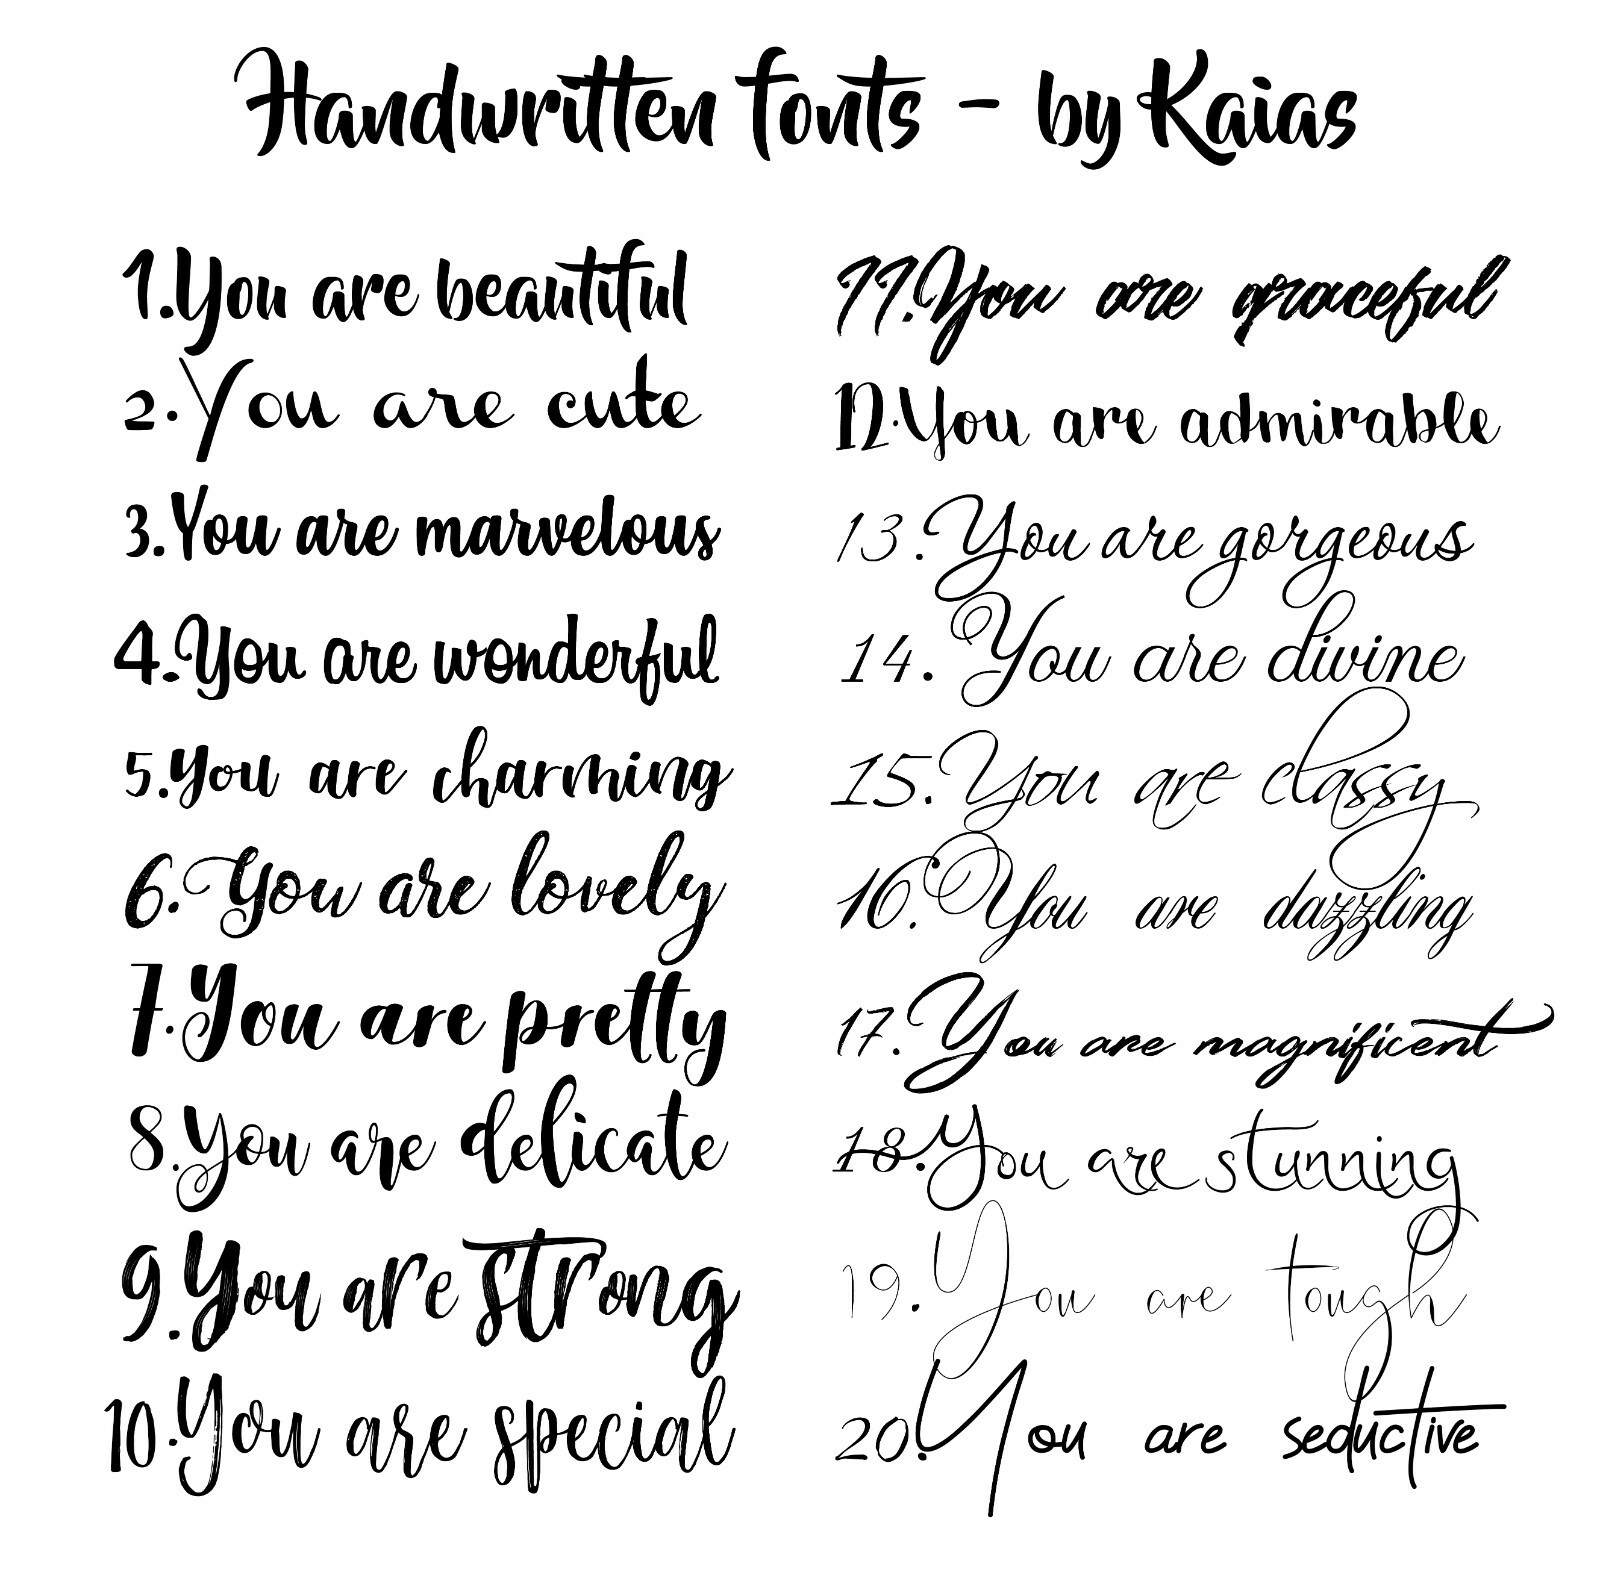 Handwritten fonts - by Kaias
1.You are beautiful
2.You are cute
3.You are marvelous
4.You are wonderful
5.You are charming
6.You are lovely
7.You are pretty
8.You are delicate
9.You are strong
10.You are special
11.You are graceful
12.You are admirable
13.You are gorgeous
14.You are divine
15.You are classy
16.You are dazzling
17.You are magnificent
18.You are stunning
19.You are tough
20.You are seductive